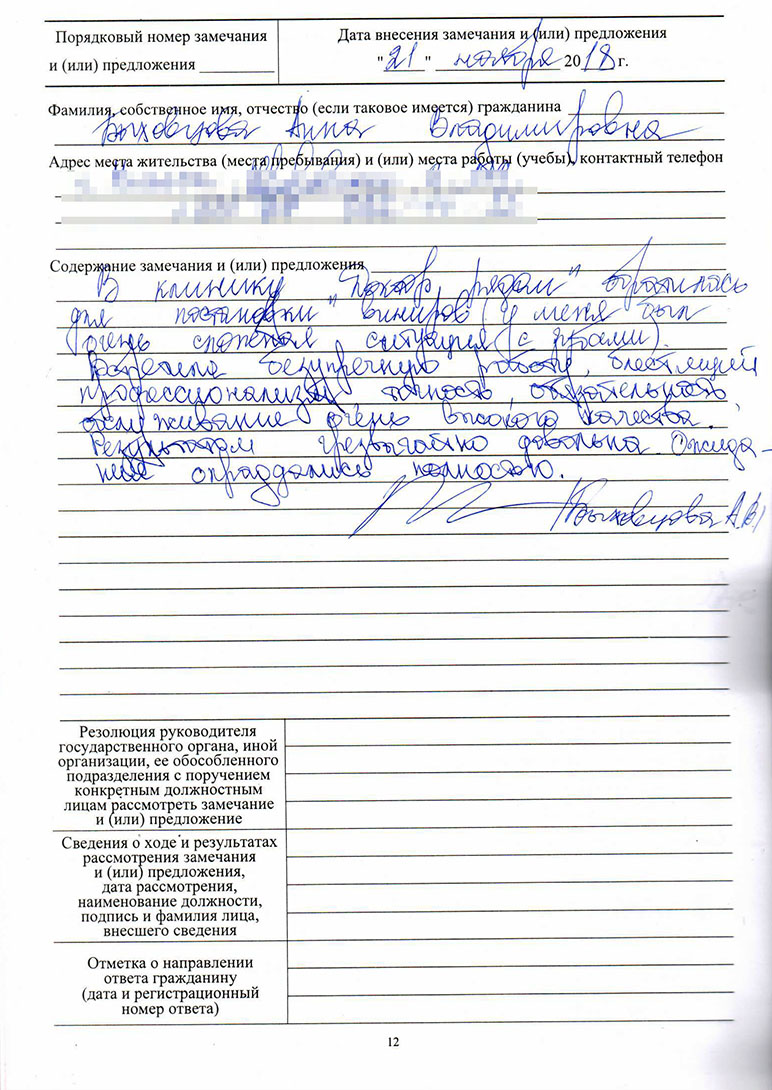 Порядковый номер замечания
и (или) предложения
Дата внесения замечания и (или) предложения
"21" ноября 2018 г.
Фамилия, собственное имя, отчество (если таковое имеется) гражданина
Быховцова Анна Владимировна
Адрес места жительства (места пребывания) и (или) места работы (учебы), контактный телефон
Содержание замечания и (или) предложения
В клинику "Доктор рядом" обратилась
для постановки виниров (у меня был
очень сложная ситуация с зубами).
Встретила безупречную работу, блестящий
профессионализм, точность, обязательность,
обслуживание очень высокого качества.
Результатом чрезвычайно довольна. Ожида-
ния оправдались полностью.
Быховцова А.В.
Резолюция руководителя
государственного органа, иной
организации, ее обособленного
подразделения с поручением
конкретным должностным
лицам рассмотреть замечание
и (или) предложение
Сведения о ходе и результатах
рассмотрения замечания
и (или) предложения,
дата рассмотрения,
наименование должности,
подпись и фамилия лица,
внесшего сведения
Отметка о направлении
ответа гражданину
(дата и регистрационный
номер ответа)
12